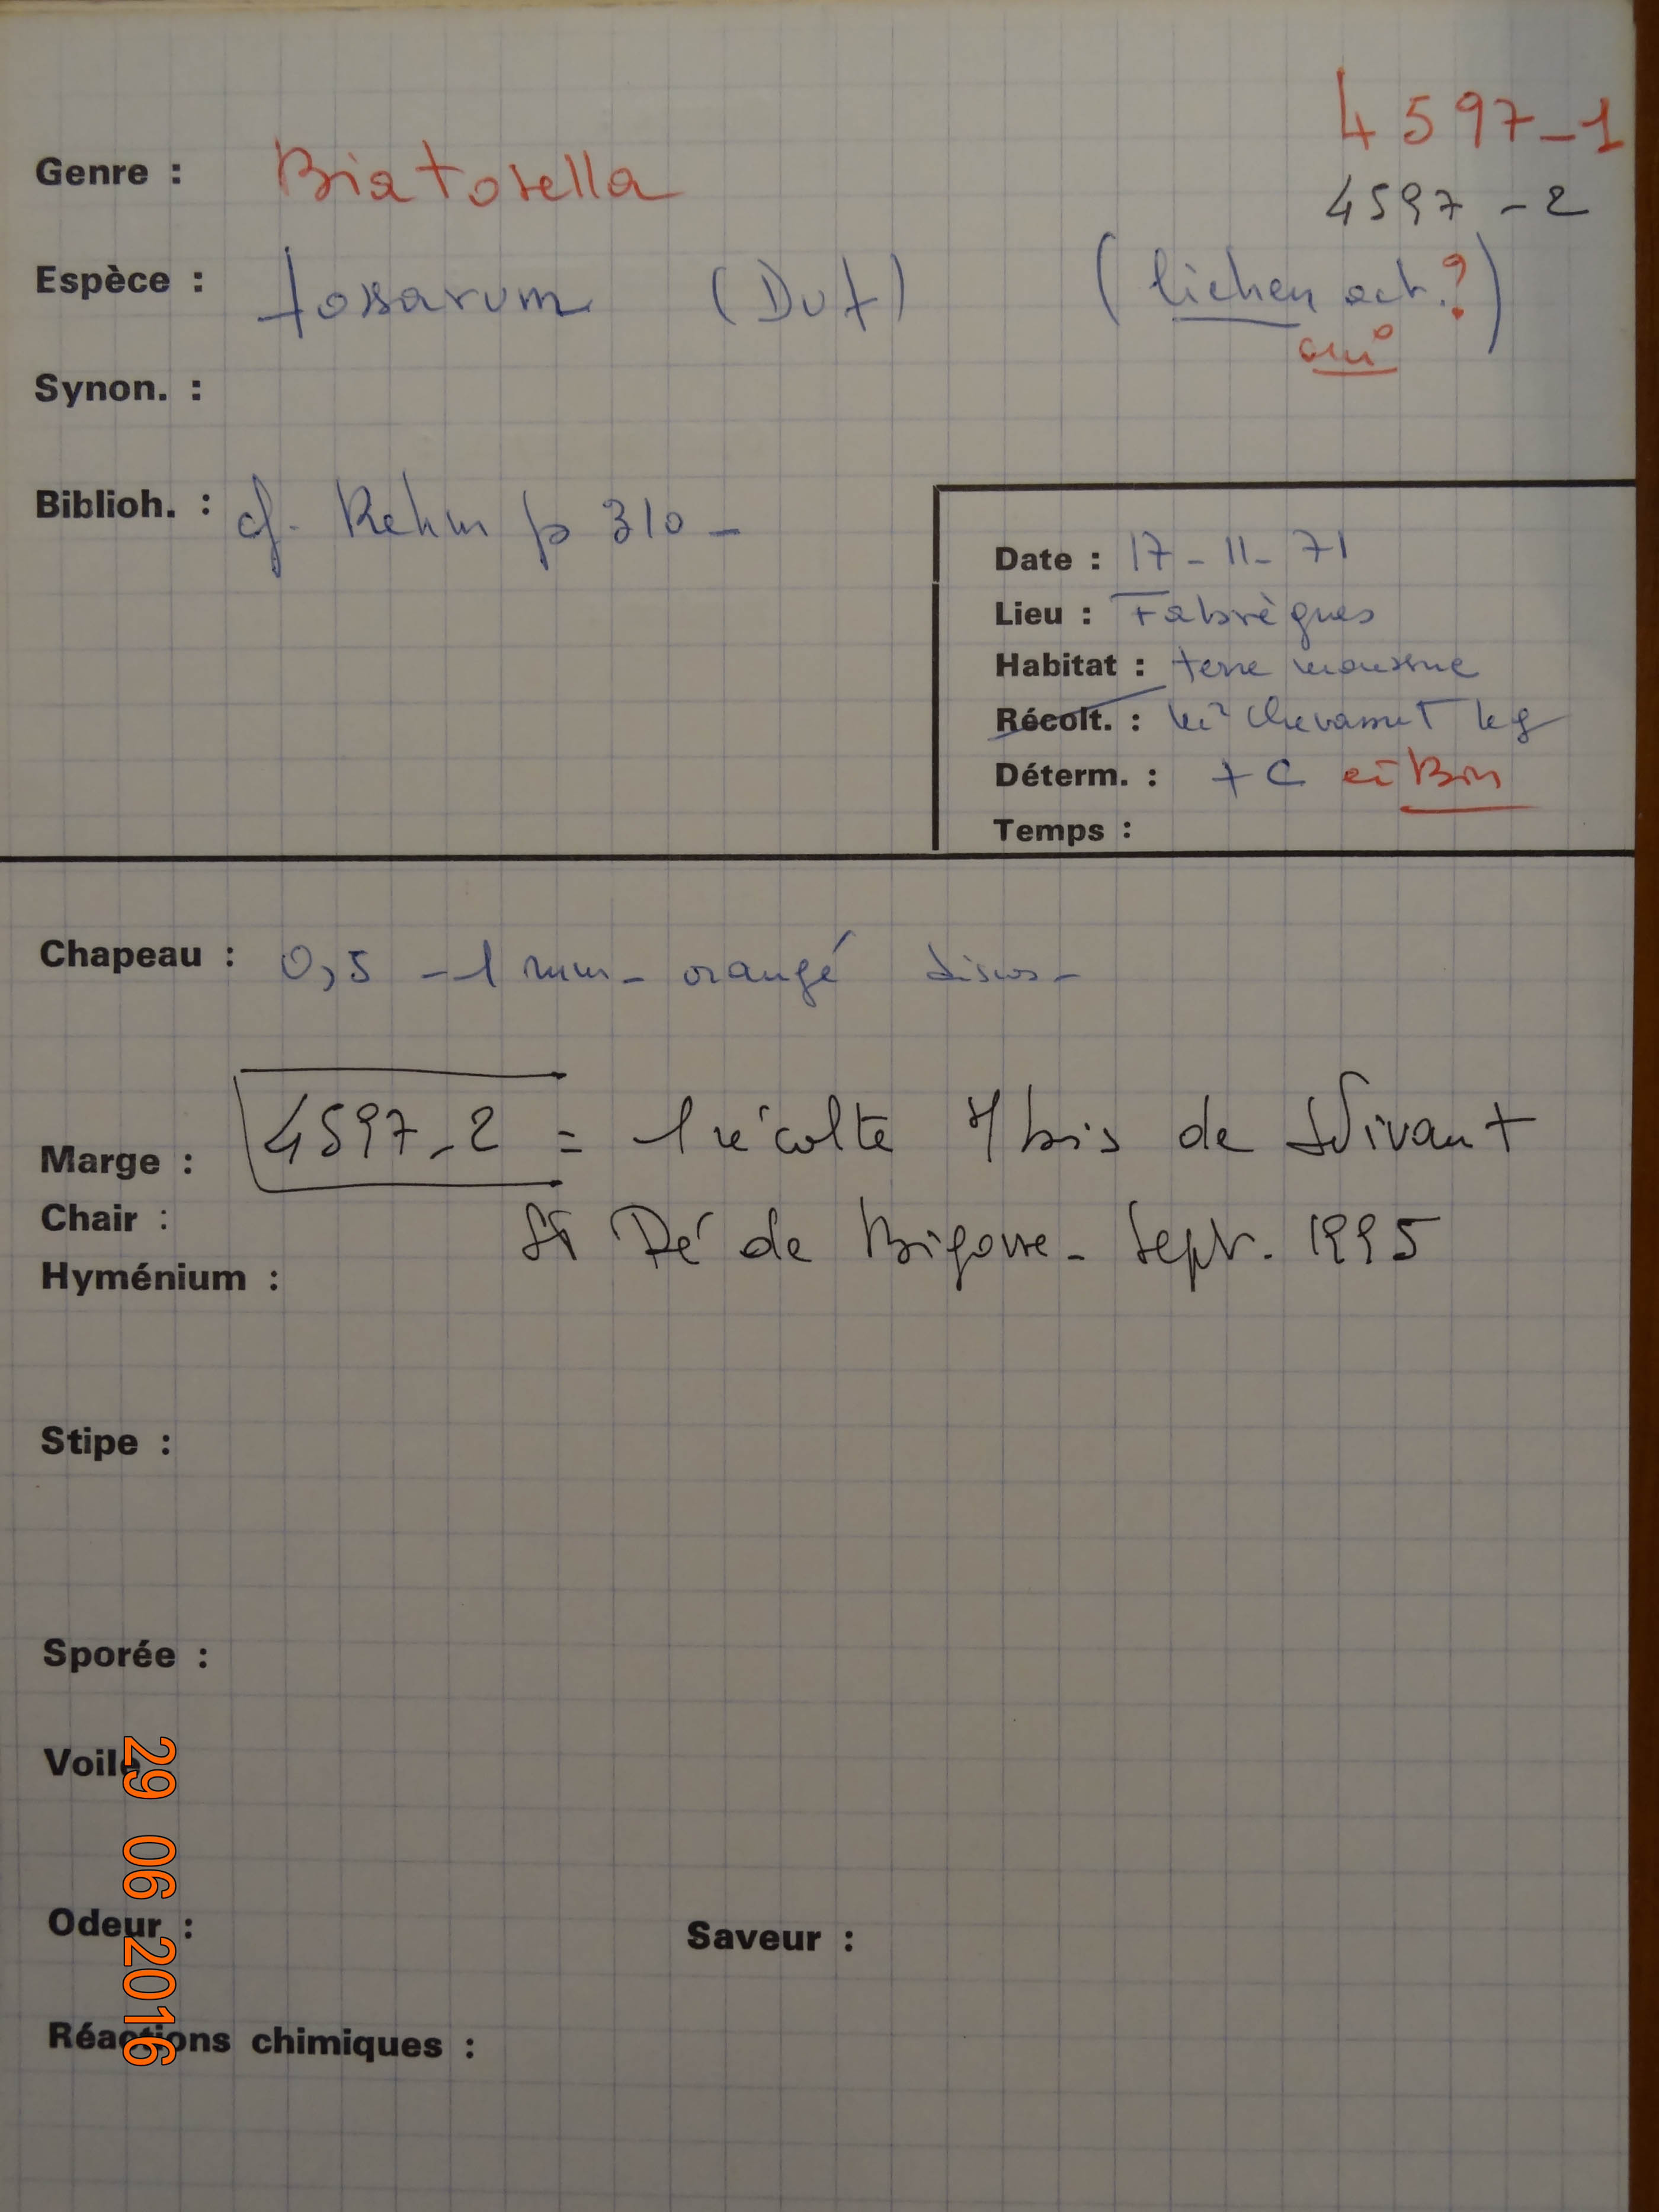 4597-1
Genre : Biatorella
4597-2
Espèce : fossarum (Duf) (lichen act.?)
oui
Synon. :
Biblioh. : cf. Rehm p 310 -
Date : 17-11-71
Lieu : Fabrègues
Habitat : terre moussue
Récolt. : Chevassut leg
Déterm. : + C et Bon
Temps :
Chapeau : 0,5 -1 mm - orangé discus -
4597-2 = 1 récolte bis de Vivant
Marge :
St Pé de Bigorre - Sept. 1995
Chair :
Hyménium :
Stipe :
Sporée :
Voile
Odeur : Saveur :
Réactions chimiques :
29 06 2016